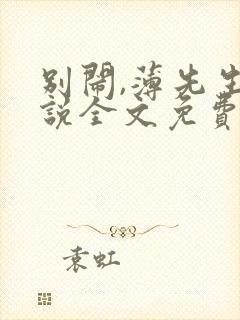 別鬧,薄先生
說全文免費
袁虹